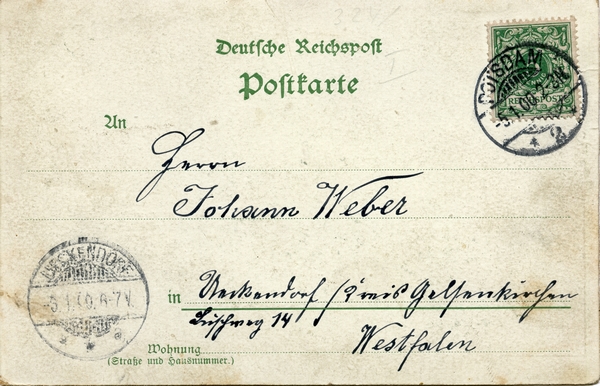 Deutsche Reichspost
Postkarte
An
Herrn
Johann Weber
in Ueckendorf / Kreis Gelsenkirchen
Buschweg 14
Westfalen
Wohnung
(Straße und Hausnummer.)
POTSDAM
REICHSPOST
UECKENDORF
6-7V.